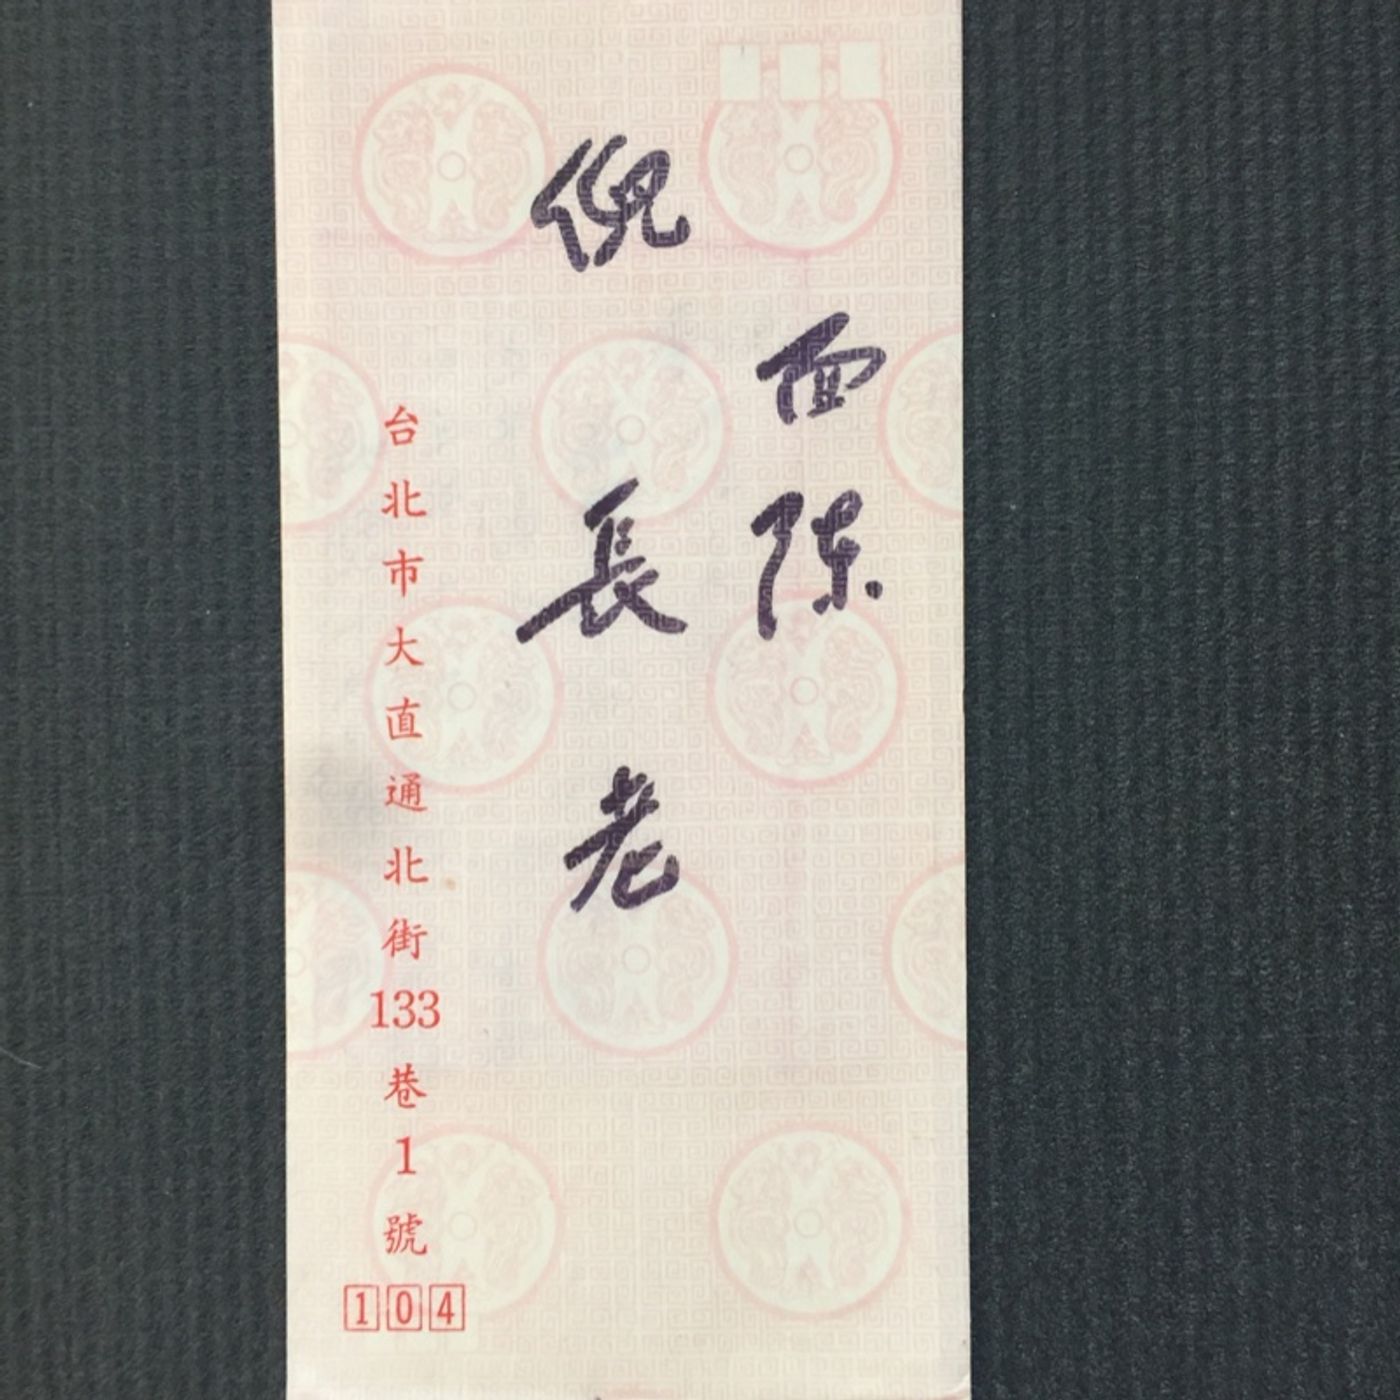 面陳
倪長老
台北市大直通北街133巷1號
104